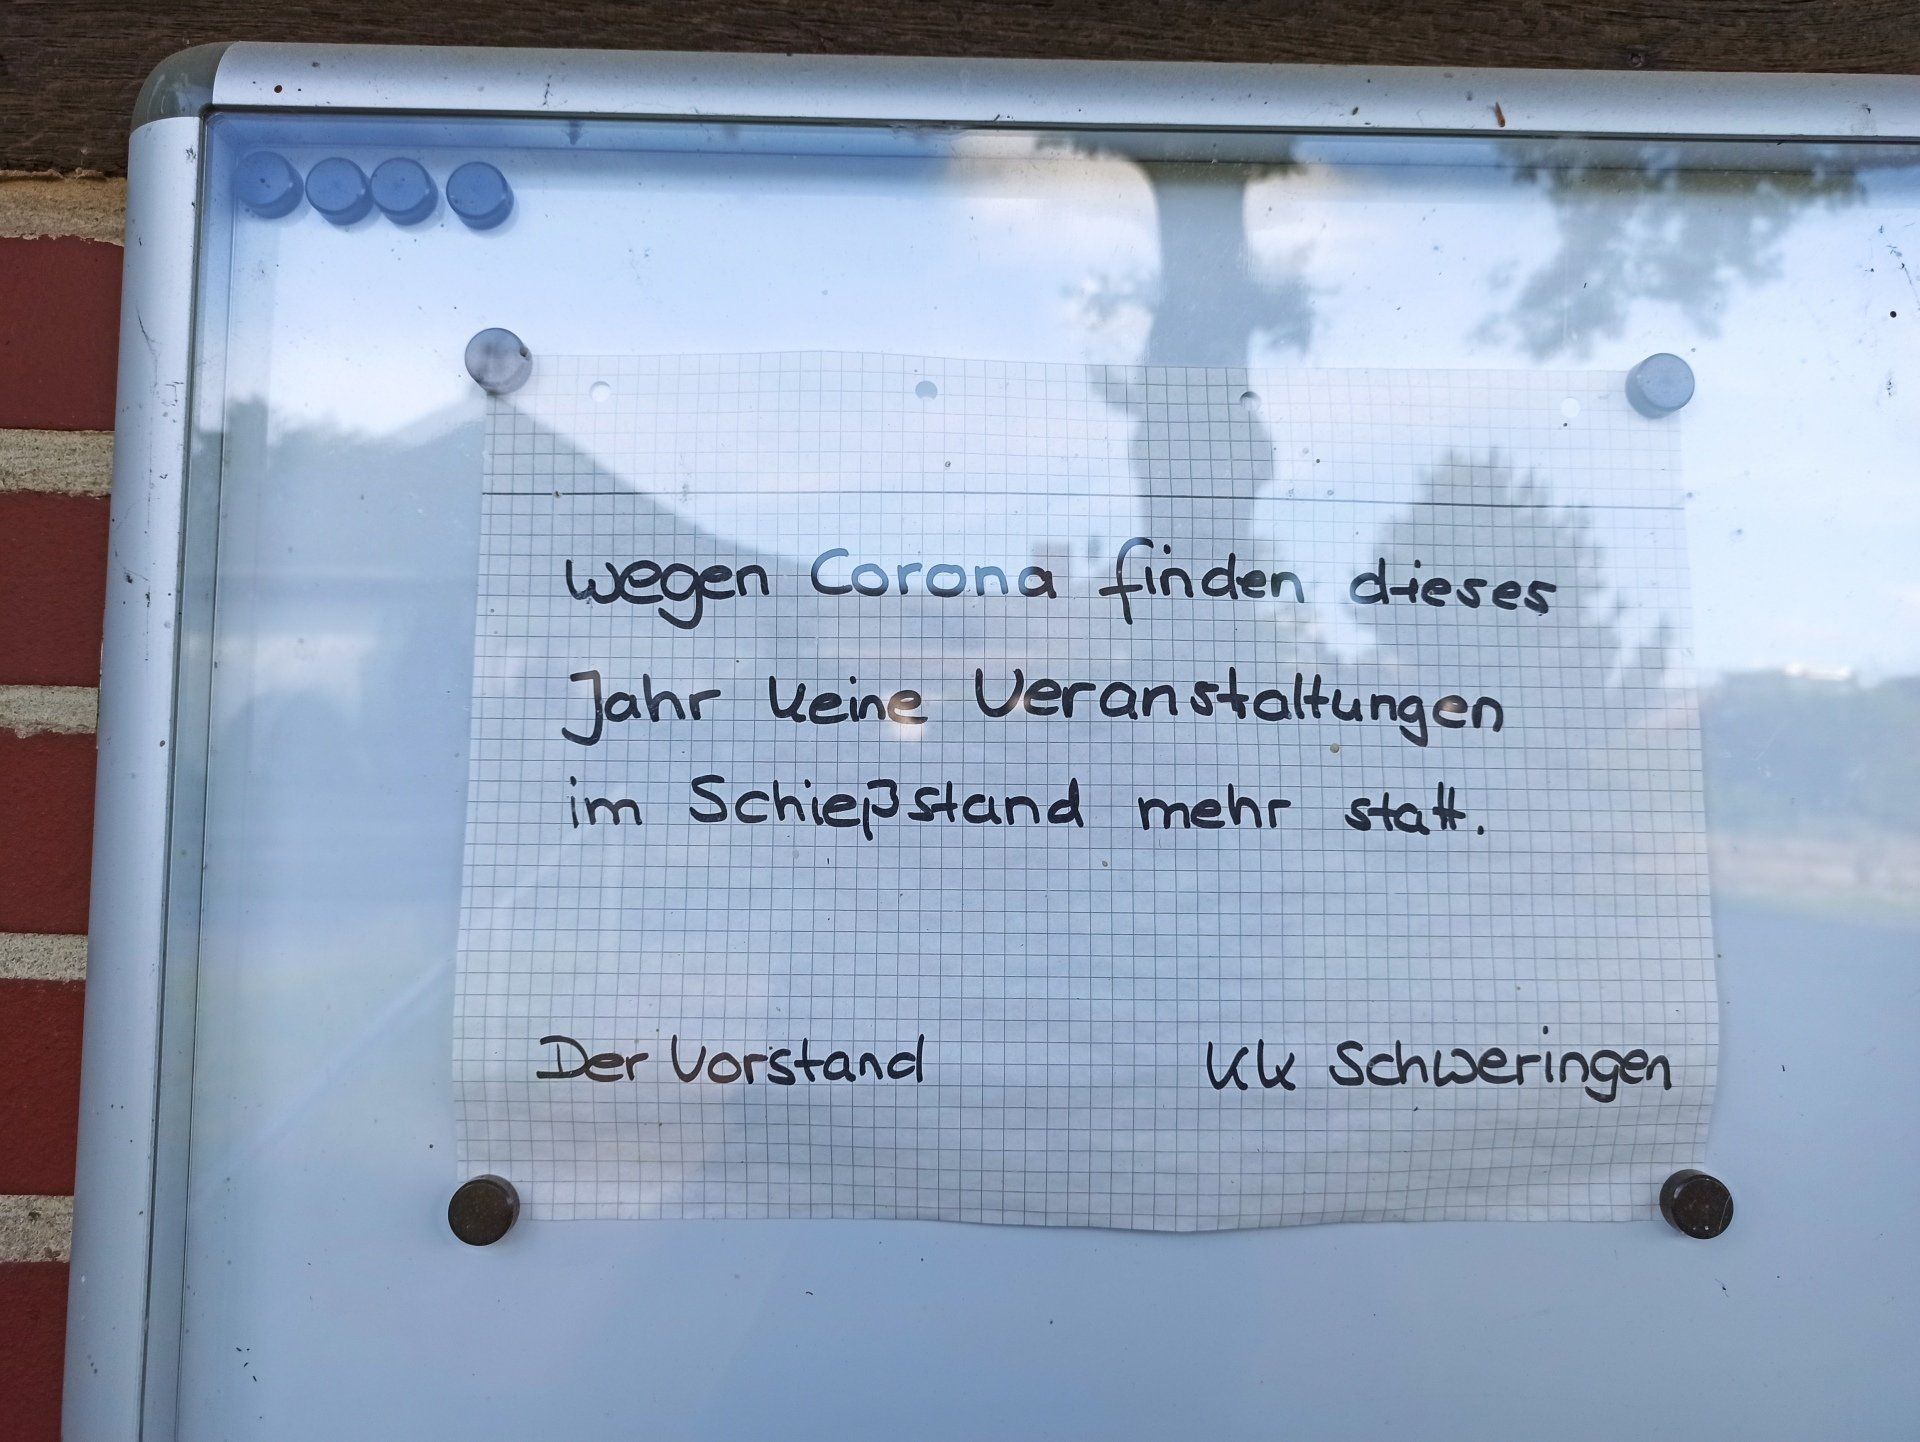 wegen Corona finden dieses
Jahr keine Veranstaltungen
im Schießstand mehr statt.
Der Vorstand
KK Schweringen